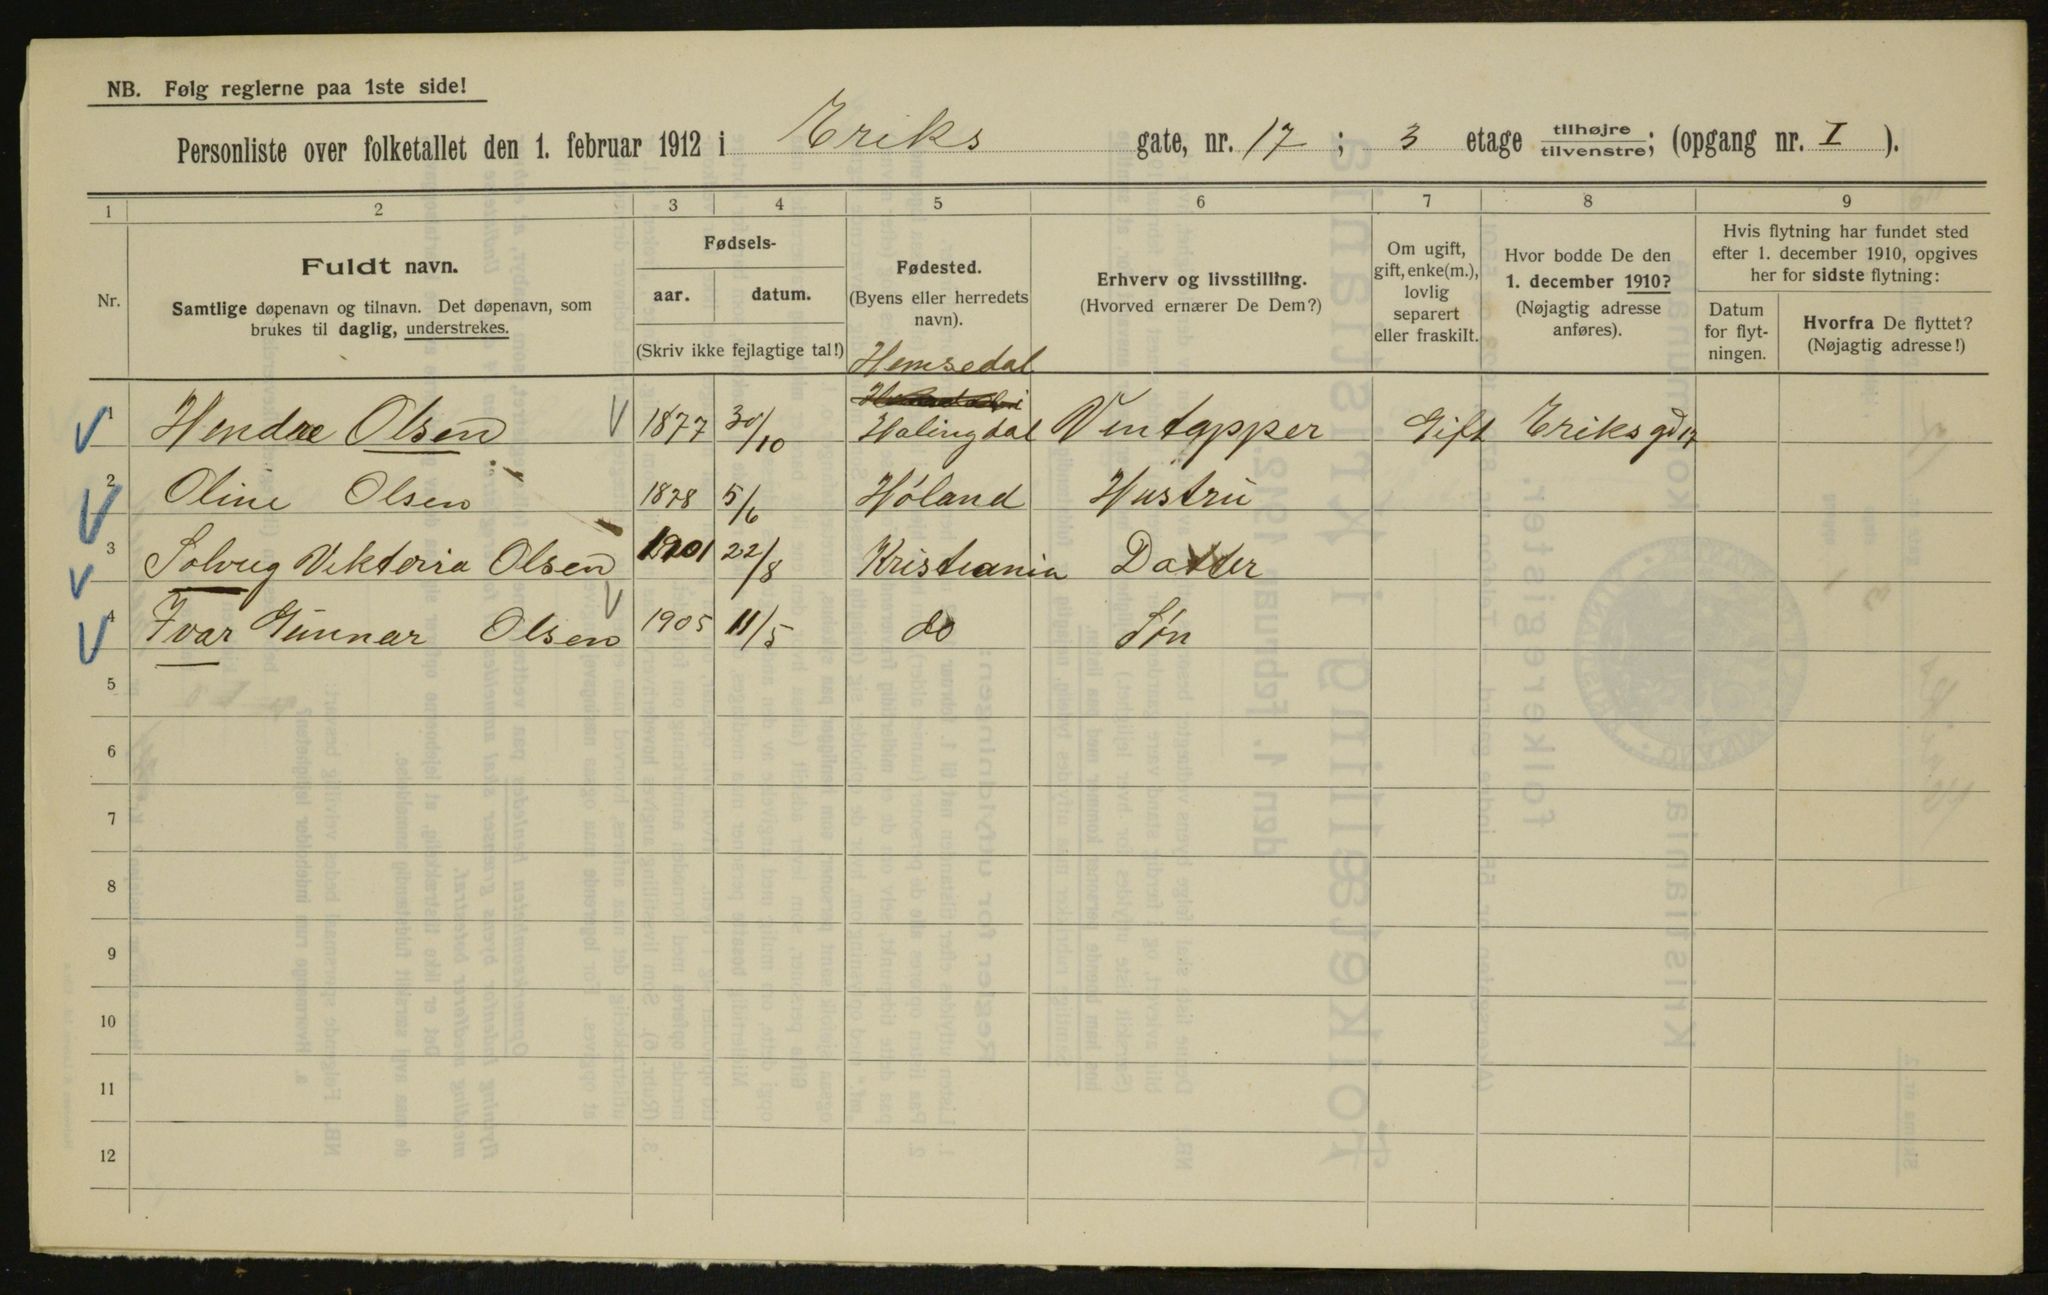 NB. Følg reglerne paa 1ste side!
Personliste over folketallet den 1. februar 1912 i Eriks gate, nr. 17 ; 3 etage tilhøjre tilvenstre; (opgang nr. I ).
1 2 3 4 5 6 7 8 9
Nr.
Fuldt navn.
Samtlige døpenavn og tilnavn. Det døpenavn, som
brukes til daglig, understrekes.
Fødsels-
aar. datum.
(Skriv ikke fejlagtige tal!)
Fødested.
(Byens eller herredets
navn).
Erhverv og livsstilling.
(Hvorved ernærer De Dem?)
Om ugift,
gift, enke(m.),
lovlig
separert
eller fraskilt.
Hvor bodde De den
1. december 1910?
(Nøjagtig adresse
anføres).
Hvis flytning har fundet sted
efter 1. december 1910, opgives
her for sidste flytning:
Datum
for flyt-
ningen.
Hvorfra De flyttet?
(Nøjagtig adresse!)
Hemsedal
1 Olsen 1877 30/10 Halingdal Vintapper Gift Eriks gd 17
2 Oline Olsen 1878 5/6 Høland Hustru
3 Solveig Viktoria Olsen 1901 22/8 Kristiania Datter
4 Ivar Gunnar Olsen 1905 11/5 do Søn
5
6
7
8
9
10
11
12